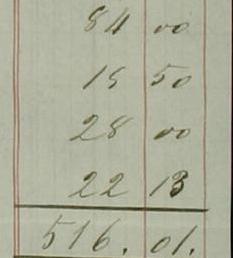 84 00
15 50
28 00
22 13
516. 01.